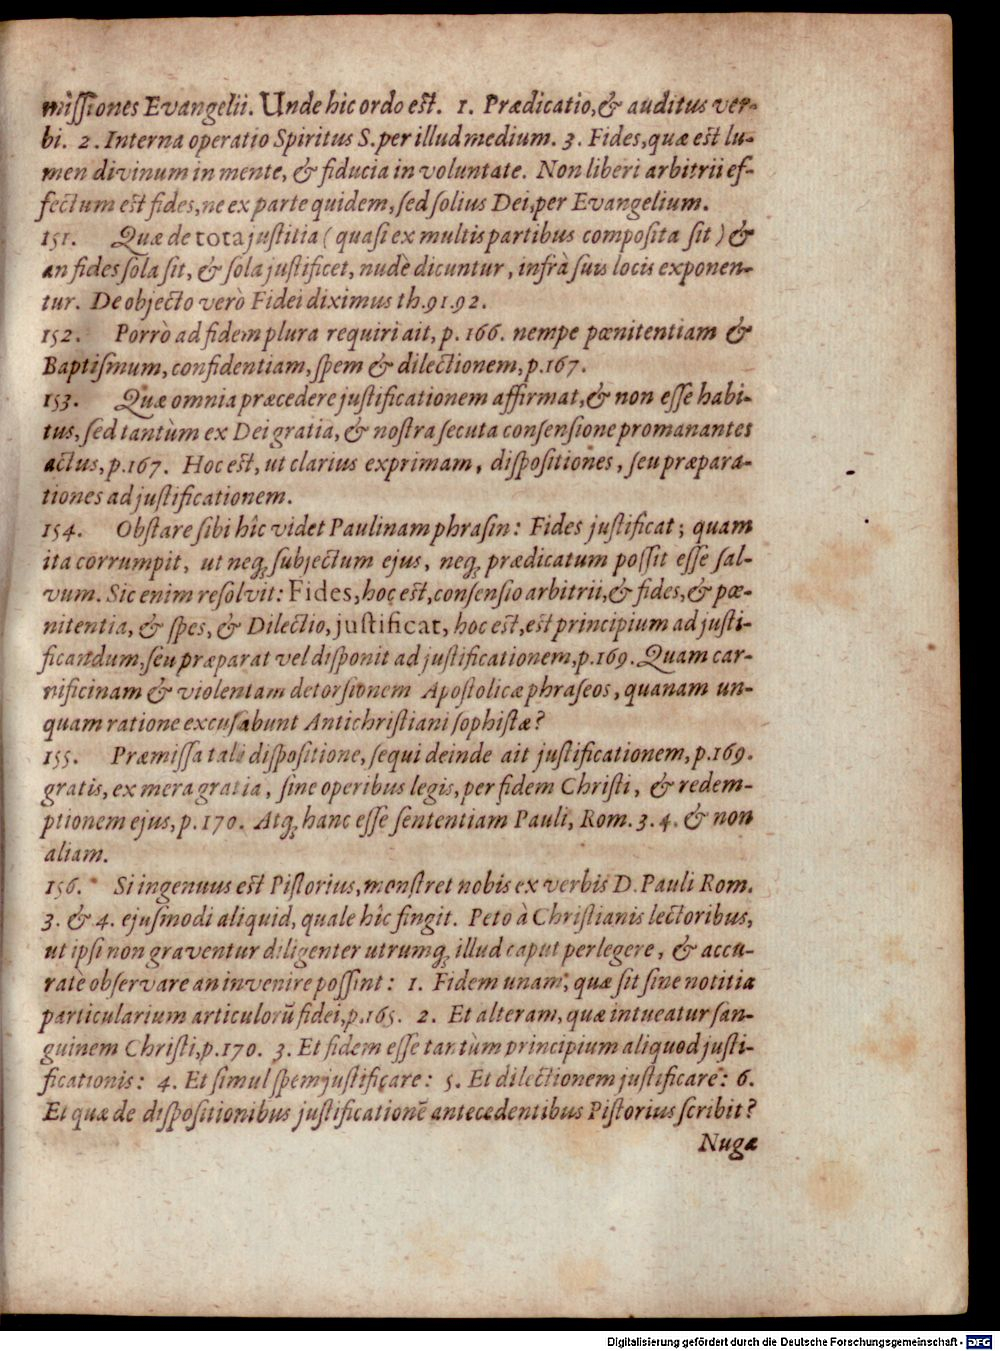 miſſiones Evangelii. Unde hic ordo est. 1. Prædicatio, & auditus ver-
bi. 2. Interna operatio Spiritus S. per illud medium. 3. Fides, quæ est lu-
men divinum in mente, & fiducia in voluntate. Non liberi arbitrii ef-
fectum est fides, ne ex parte quidem, ſed ſolius Dei, per Evangelium.
151. Quæ de tota juſtitia (quaſi ex multis partibus compoſita ſit) &
an fides ſola ſit, & ſola juſtificet, nudè dicuntur, infrà ſuis locis exponen-
tur. De objecto verò Fidei diximus th. 91. 92.
152. Porrò ad fidem plura requiri ait, p. 166. nempe pœnitentiam &
Baptiſmum, confidentiam, ſpem & dilectionem, p. 167.
153. Quæ omnia præcedere juſtificationem affirmat, & non eſſe habi-
tus, ſed tantùm ex Dei gratia, & noſtra ſecuta conſenſione promanantes
actus, p. 167. Hoc est, ut clarius exprimam, diſpoſitiones, ſeu præpara-
tiones ad juſtificationem.
154. Obſtare ſibi hîc videt Paulinam phraſin: Fides juſtificat; quam
ita corrumpit, ut neq; ſubjectum ejus, neq; prædicatum poſſit eſſe ſal-
vum. Sic enim reſolvit: Fides, hoc est, conſenſio arbitrii, & fides, & pœ-
nitentia, & ſpes, & Dilectio, juſtificat, hoc est, est principium ad juſti-
ficandum, ſeu præparat vel diſponit ad juſtificationem, p. 169. Quam car-
nificinam & violentam detorſionem Apoſtolicæ phraſeos, quanam un-
quam ratione excuſabunt Antichriſtiani ſophiſtæ?
155. Præmiſſa tali diſpoſitione, ſequi deinde ait juſtificationem, p. 169.
gratis, ex mera gratia, ſine operibus legis, per fidem Chriſti, & redem-
ptionem ejus, p. 170. Atq; hanc eſſe ſententiam Pauli, Rom. 3. 4. & non
aliam.
156. Si ingenuus est Piſtorius, monſtret nobis ex verbis D. Pauli Rom.
3. & 4. ejuſmodi aliquid, quale hîc fingit. Peto à Chriſtianis lectoribus,
ut ipſi non graventur diligenter utrumq; illud caput perlegere, & accu-
ratè obſervare an invenire poſſint: 1. Fidem unam, quæ ſit ſine notitia
particularium articulorũ fidei, p. 165. 2. Et alteram, quæ intueatur ſan-
guinem Chriſti, p. 170. 3. Et fidem eſſe tantùm principium aliquod juſti-
ficationis: 4. Et ſimul ſpem juſtificare: 5. Et dilectionem juſtificare: 6.
Et quæ de diſpoſitionibus juſtificationẽ antecedentibus Piſtorius ſcribit?
Nugæ
Digitalisierung gefördert durch die Deutsche Forschungsgemeinschaft - DFG